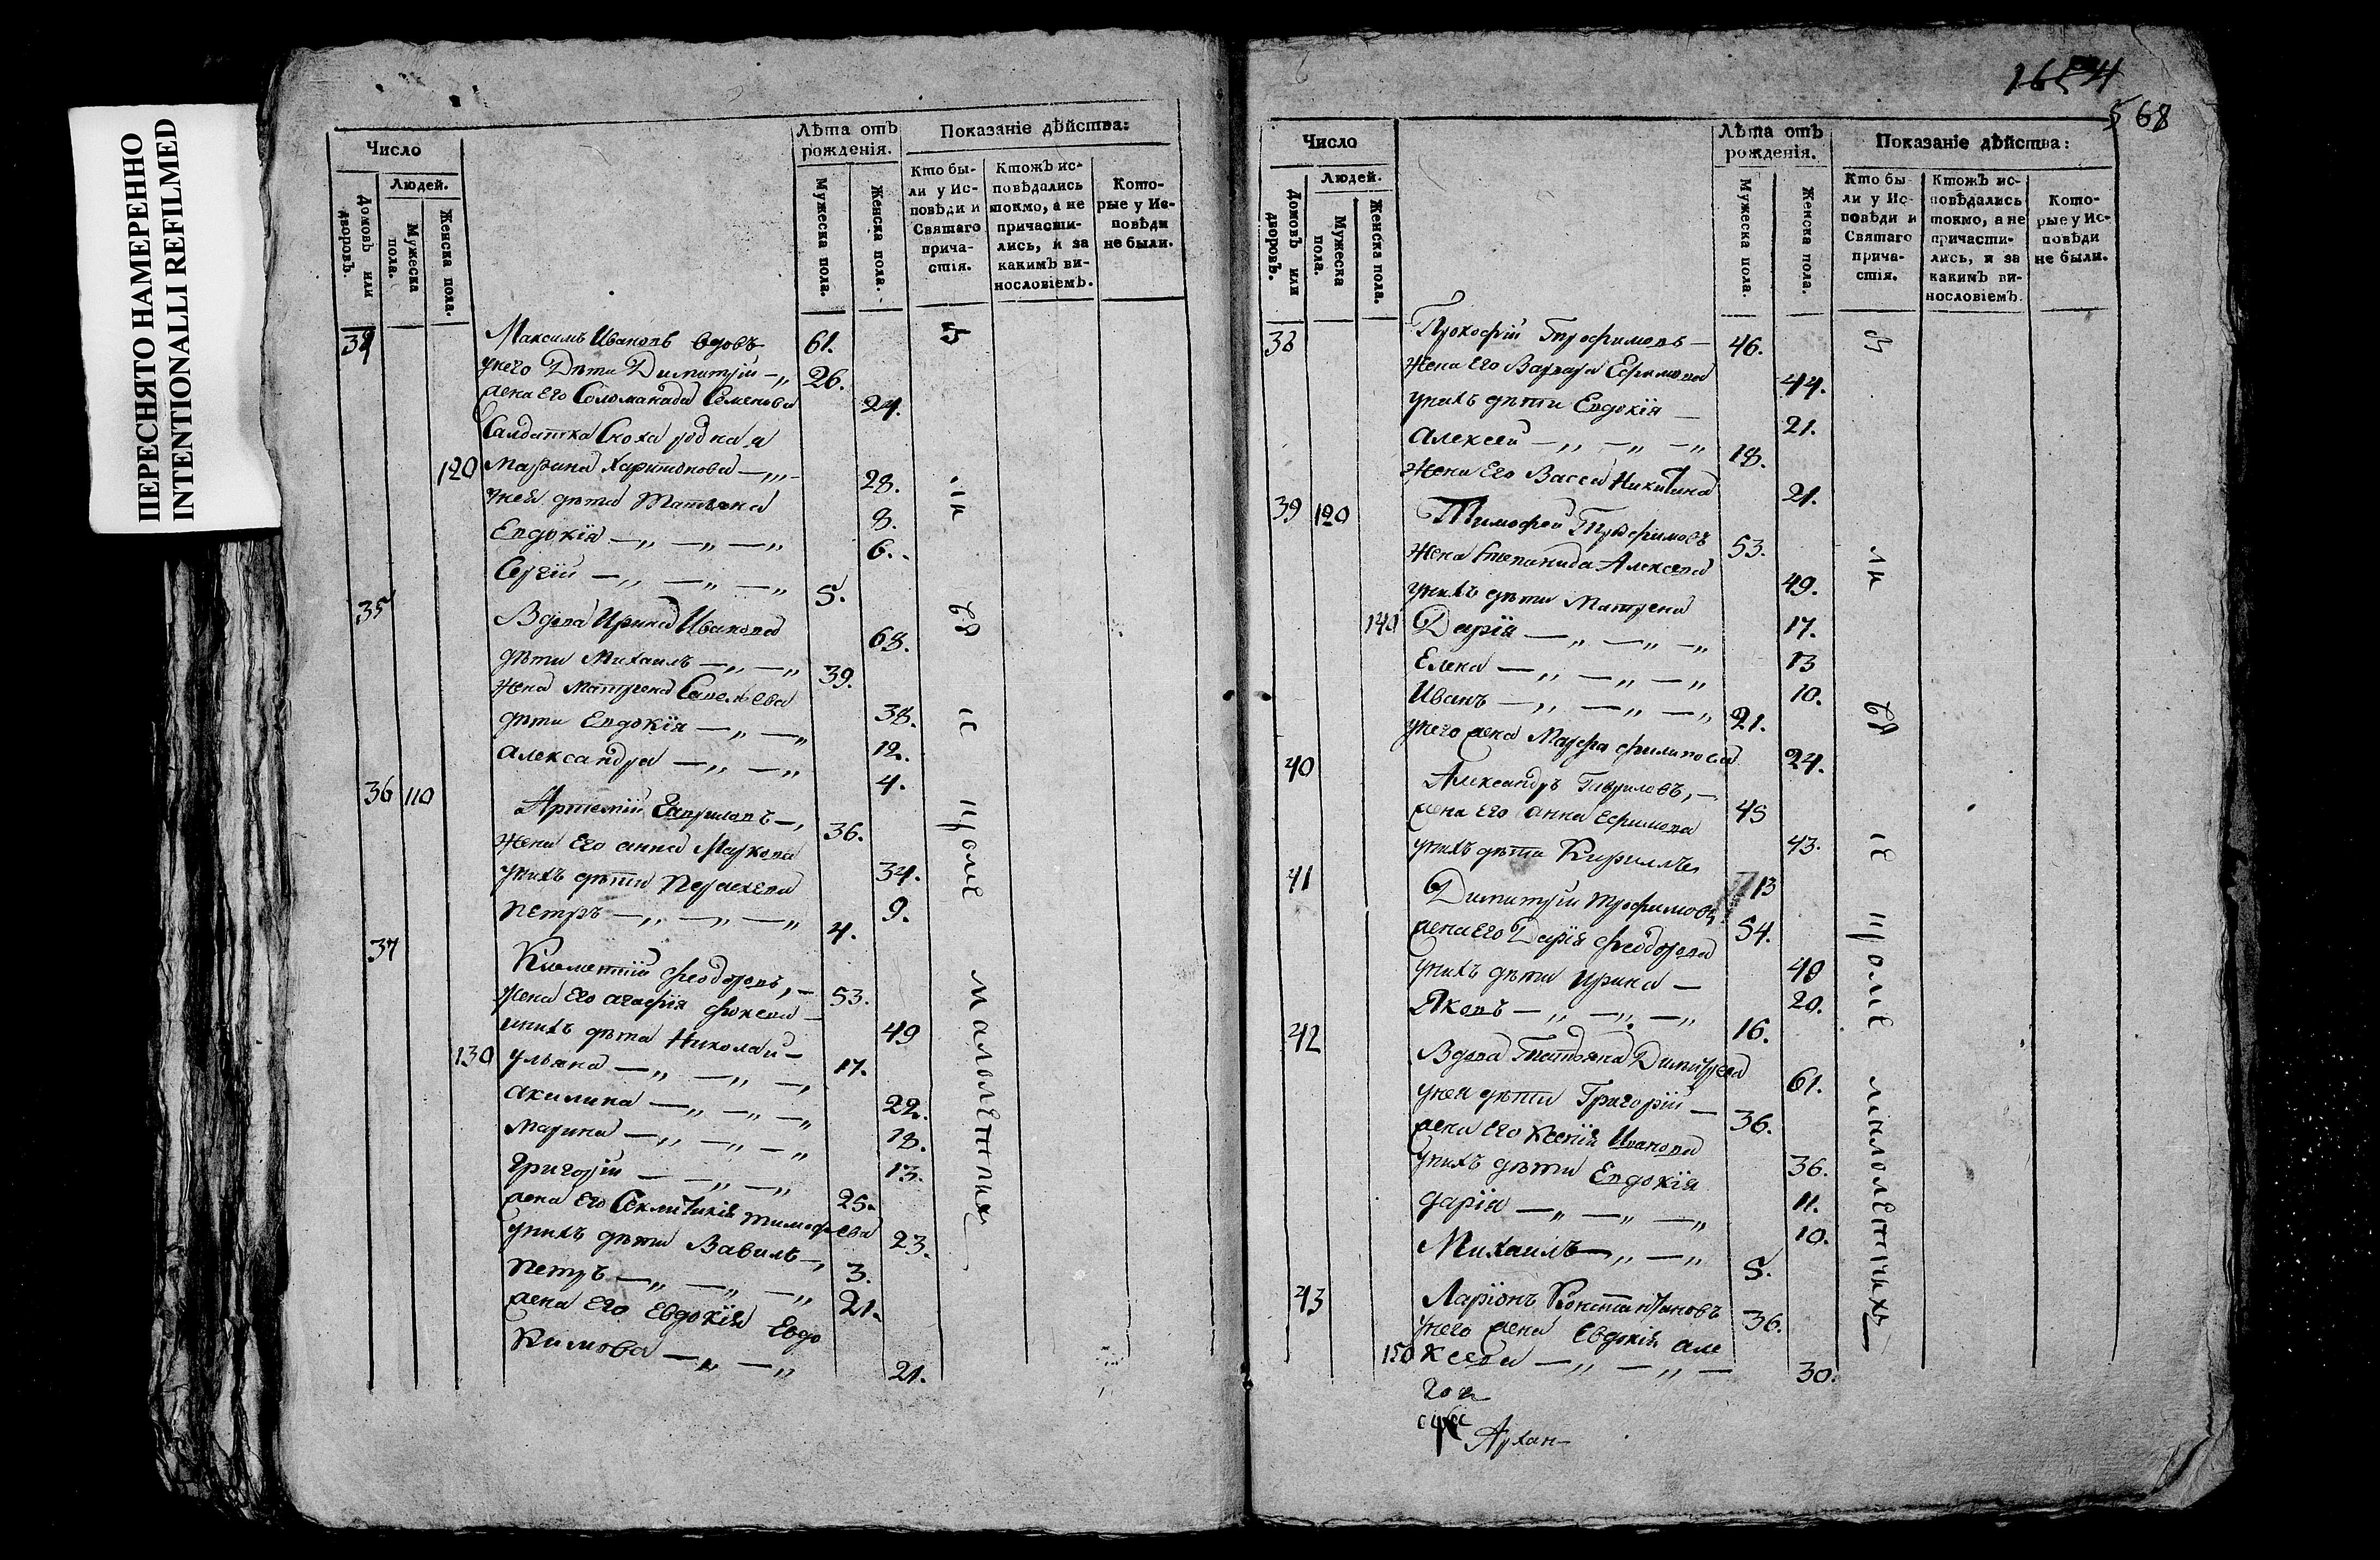 ПЕРЕСНЯТО НАМЕРЕННО
INTENTIONALLI REFILMED
Число
Лѣта отъ рожденія.
Показаніе дѣйства:
Домовъ или дворовъ.
Людей.
Мужеска пола.
Женска пола.
Мужеска пола.
Женска пола.
Кто бы-
ли у Ис-
повѣди и
Святаго
прича-
стія.
Ктожъ ис-
повѣдались
токмо, а не
причасти-
лись, и за
какимъ ви-
нословіемъ.
Кото-
рые у Ис-
повѣди
не были.
34 Максимъ Ивановъ вдовъ 61.
у него Дѣти Димитрій —„ 26.
жена его Соломанида Семенова 24.
Салдатка Сноха родная
120 Марина Харитонова —„„— 28.
у нея дѣти Татьяна 8.
Евдокія —„ —„ —„ 6.
Сергій —„ —„ —„ 5.
35 Вдова Ирина Иванова 68.
дѣти Михаилъ —„ —„ 39.
жена Матрена Савельева 38.
дѣти Евдокія —„ —„ 12.
Александра —„ —„ 4.
36 110 Артемій Гавриловъ —, 36.
жена его анна Маркова 34.
у нихъ дѣти Параскева 9.
Петръ —„ —„ —„ 4.
37 Климентій Феодоровъ, — 53.
жена его агафія Фокеева — 49
у нихъ дѣти Николай — 17.
130 Ульяна —„ —„ —„ 22.
Акилина —„ —„ —„ 18.
Марина —„ —„ —„ 13.
Григорій — —„ —„ 25.
жена его Секлитикія тимофеева 23.
у нихъ дѣти Вавилъ —, 3.
Петръ —„ —„ —„ 21.
жена его Евдокія Евдо
кимова —„ —„ 21.
въ
ли
вс
ѣ
кроме
малолетних
568
Число
Лѣта отъ рожденія.
Показаніе дѣйства:
Домовъ или дворовъ.
Людей.
Мужеска пола.
Женска пола.
Мужеска пола.
Женска пола.
Кто бы
ли у Ис-
повѣди и
Святаго
прича-
стія.
Ктожъ ис-
повѣдались
токмо, а не
причасти-
лись, и за
какимъ ви-
нословіемъ.
Кото-
рые у Ис-
повѣди
не были.
38 Прокофій Трофимовъ — 46.
жена его Варвара Ефимова 44.
у нихъ дѣти Евдокія — 21.
Алексей —„ —„ —„ 18.
жена его Васса Никитина 21.
39 120 Тимофей Трофимовъ 53.
жена Степанида Алексева 49.
у нихъ дѣти Матрена 17.
140 Дарія —„ —„ —„ 13
Елена —„ —„ —„ 10.
Иванъ —„ —„ —„ 21.
у него жена Марфа филипова 24.
40 Александръ Гавриловъ, — 45
жена его анна Ефимова 43.
у нихъ дѣти Кириллъ 13
41 Димитрій трофимовъ 54.
жена его Дарія феодорова 40
у нихъ дѣти Ирина — 20.
Яковъ —„ —„ —„ 16.
42 Вдова Татьяна Димитрева 61.
у нея дѣти Григорій — 36.
жена его Ксенія Иванова 36.
у нихъ дѣти Евдокія 11.
дарія —„ —„ —„ 10.
Михаилъ —„ —„ 5.
43 Ларіонъ Константиновъ 36.
у него жена Евдокія Але
150 ксева —„ —„ — 30.
кроме
малолетнихъ
Архан-